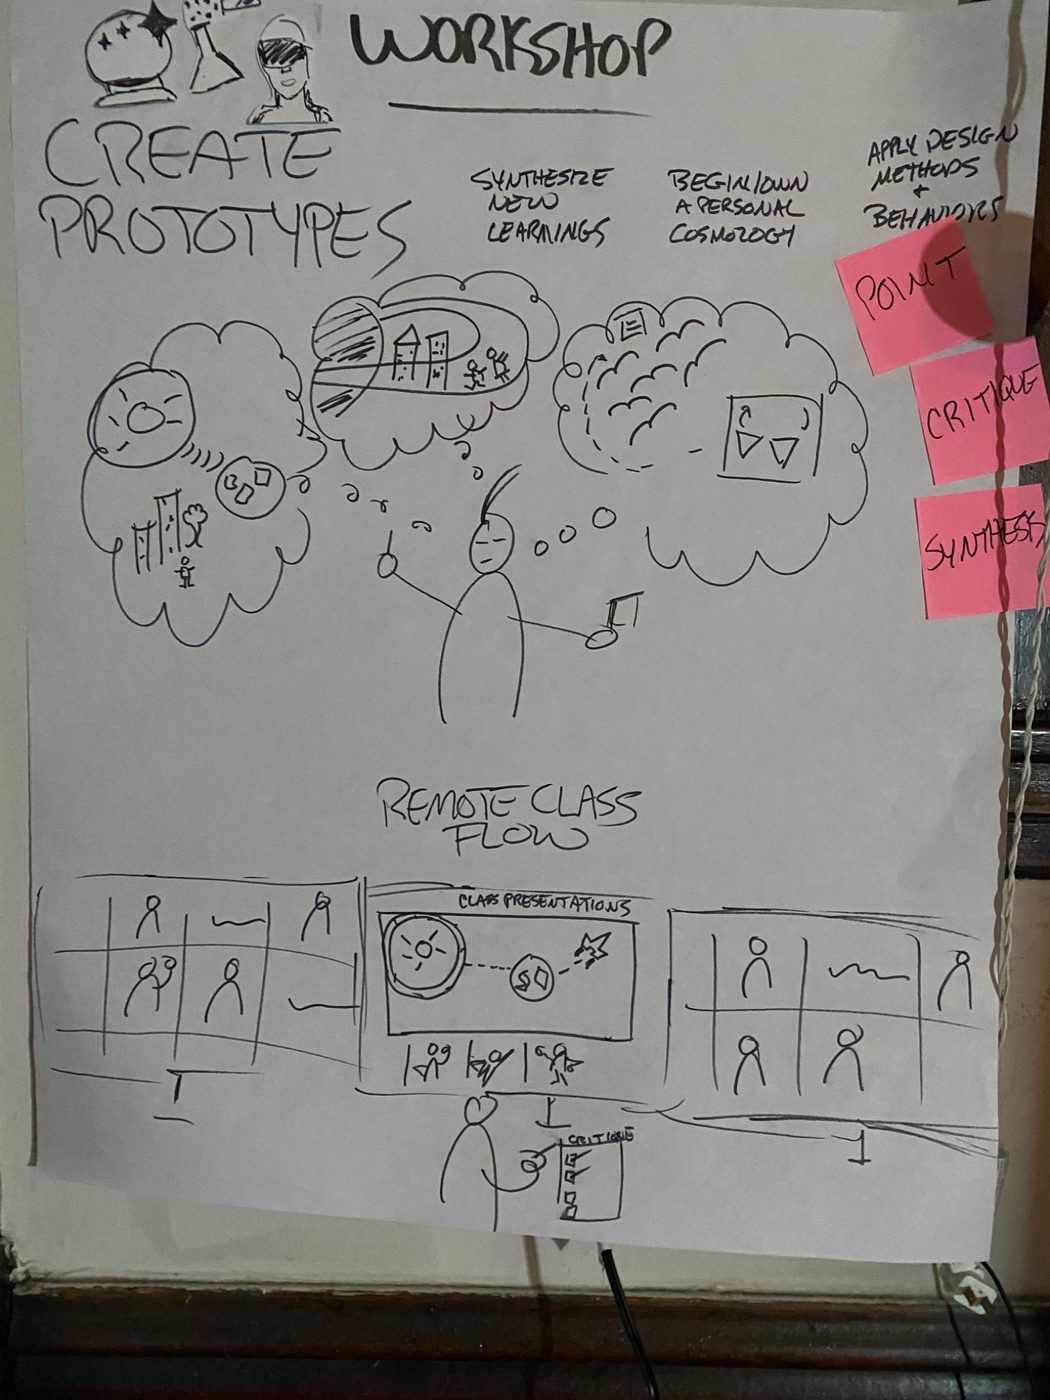 WORKSHOP
CREATE
PROTOTYPES
SYNTHESIZE
NEW
LEARNINGS
BEGIN/OWN
A PERSONAL
COSMOLOGY
APPLY DESIGN
METHODS
+
BEHAVIORS
POINT
CRITIQUE
SYNTHESIS
REMOTE CLASS
FLOW
CLASS PRESENTATIONS
CRITIQUE